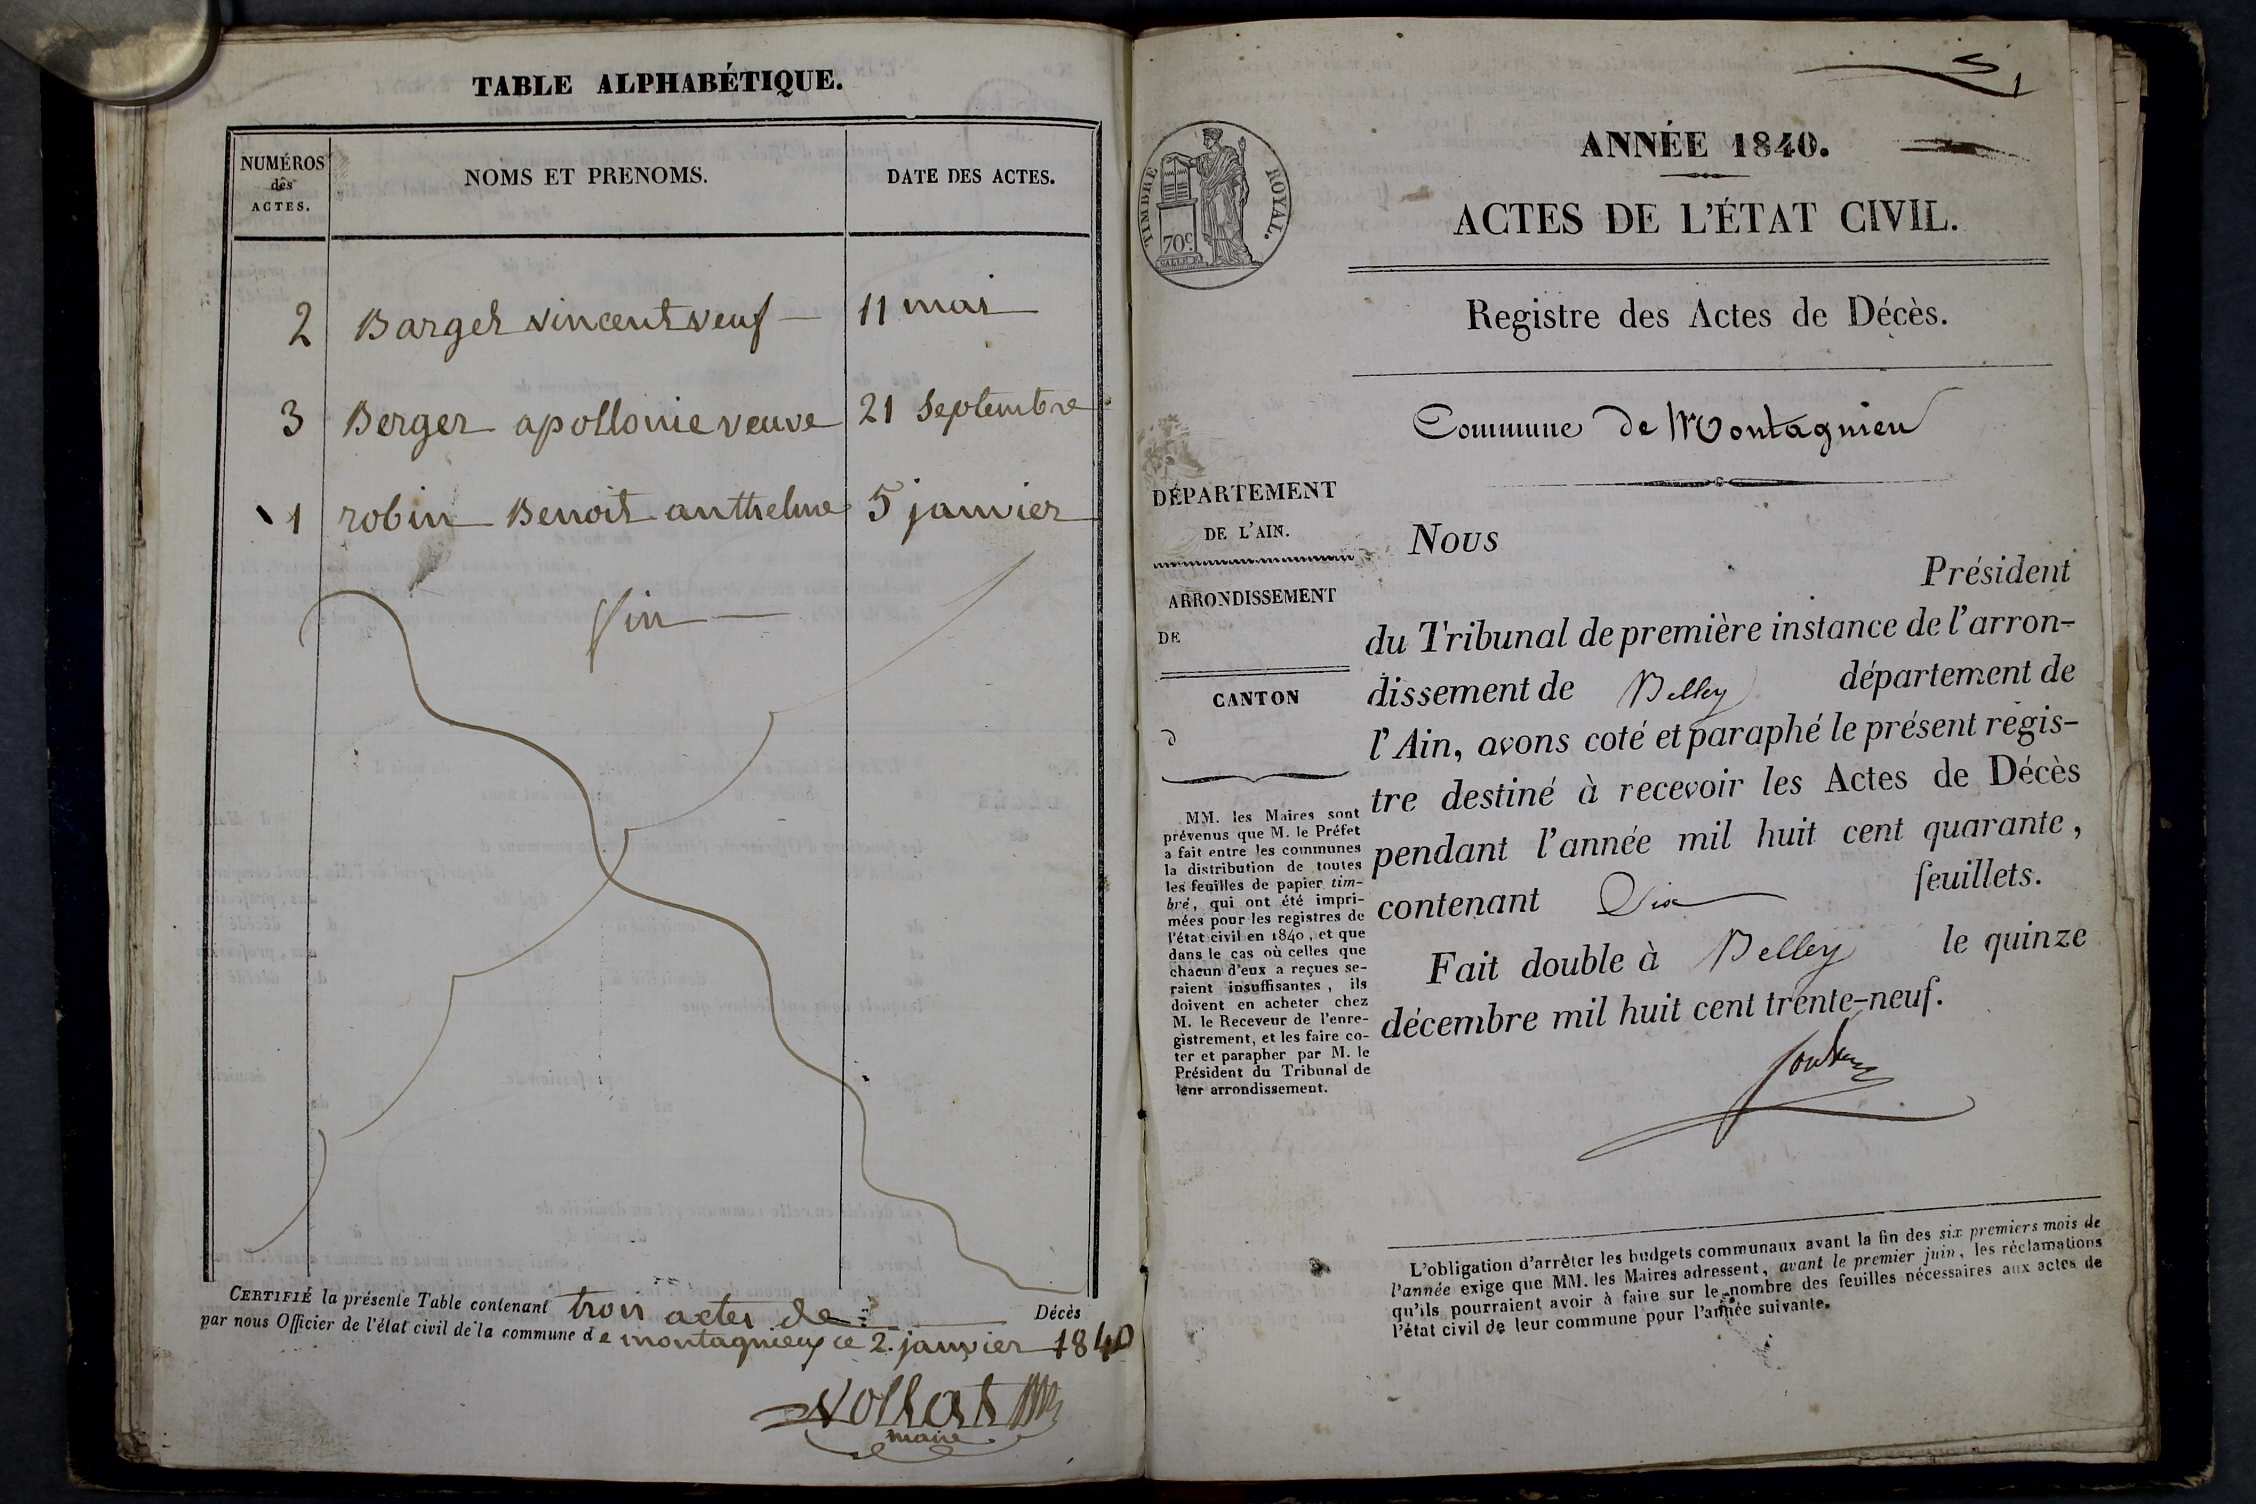 TABLE ALPHABÉTIQUE.
NUMÉROS
des
ACTES.
NOMS ET PRENOMS.
DATE DES ACTES.
2 Barget vincent veuf 11 mai
3 Berger apollonie veuve 21 septembre
1 robin Benoit anthelme 5 janvier
fin
CERTIFIÉ la présente Table contenant trois actes de Décès
par nous Officier de l'état civil de la commune de montagnieu ce 2. janvier 1840
maire
1
TIMBRE ROYAL.
70c
ANNÉE 1840.
ACTES DE L'ÉTAT CIVIL.
Registre des Actes de Décès.
Commune de Montagnieu
DÉPARTEMENT
DE L'AIN.
ARRONDISSEMENT
DE
CANTON
d
MM. les Maires sont
prévenus que M. le Préfet
a fait entre les communes
la distribution de toutes
les feuilles de papier tim-
bré, qui ont été impri-
mées pour les registres de
l'état civil en 1840, et que
dans le cas où celles que
chacun d'eux a reçues se-
raient insuffisantes, ils
doivent en acheter chez
M. le Receveur de l'enre-
gistrement, et les faire co-
ter et parapher par M. le
Président du Tribunal de
leur arrondissement.
Nous
Président
du Tribunal de première instance de l'arron-
dissement de Belley département de
l'Ain, avons coté et paraphé le présent régis-
tre destiné à recevoir les Actes de Décès
pendant l'année mil huit cent quarante,
contenant Dix feuillets.
Fait double à Belley le quinze
décembre mil huit cent trente-neuf.
L'obligation d'arrêter les budgets communaux avant la fin des six premiers mois de
l'année exige que MM. les Maires adressent, avant le premier juin, les réclamations
qu'ils pourraient avoir à faire sur le nombre des feuilles nécessaires aux actes de
l'état civil de leur commune pour l'année suivante.